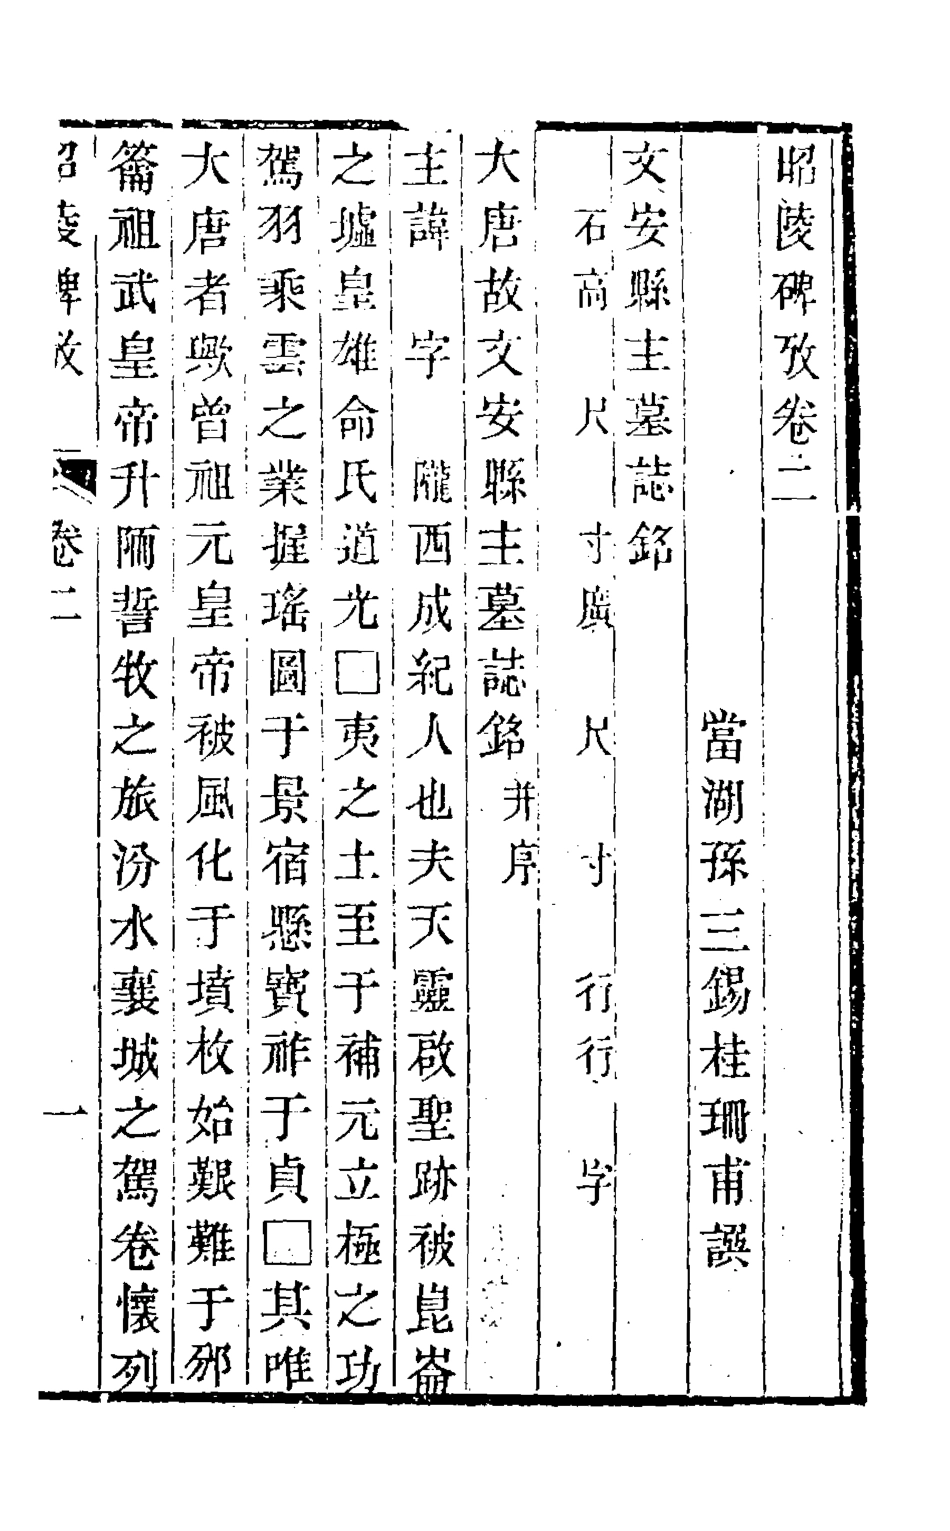 昭陵碑攷卷二
當湖孫三錫桂珊甫譔
文安縣主墓誌銘
石高　尺　寸廣　尺　寸　行行　字
大唐故文安縣主墓誌銘并序
主諱　字　隴西成紀人也夫天靈啟聖跡被崑崙
之墟皇雄命氏道光□夷之土至于補元立極之功
駕羽乘雲之業握瑤圖于景宿懸寶祚于貞□其唯
大唐者歟曾祖元皇帝被風化于墳枚始艱難于邠
籥祖武皇帝升陑誓牧之旅汾水襄城之駕卷懷列
昭陵碑攷　卷二　一